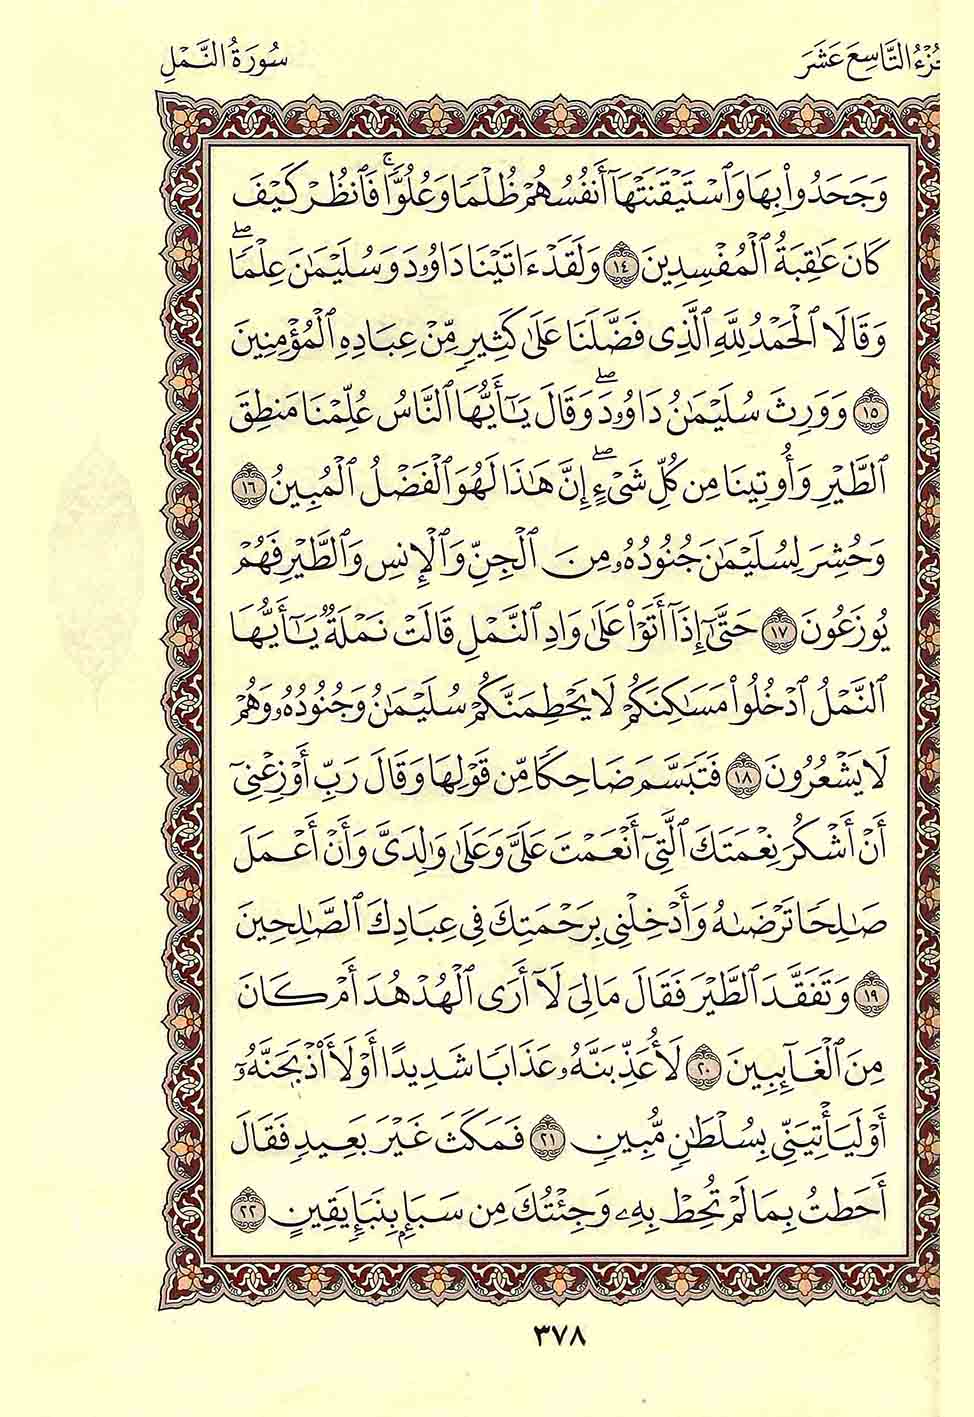 جُزْءُ التَّاسِعَ عَشَرَ
سُورَةُ النَّمْلِ
وَجَحَدُوا۟ بِهَا وَٱسْتَيْقَنَتْهَآ أَنفُسُهُمْ ظُلْمًا وَعُلُوًّا ۚ فَٱنظُرْ كَيْفَ
كَانَ عَٰقِبَةُ ٱلْمُفْسِدِينَ ١٤ وَلَقَدْ ءَاتَيْنَا دَاوُۥدَ وَسُلَيْمَٰنَ عِلْمًا ۖ
وَقَالَا ٱلْحَمْدُ لِلَّهِ ٱلَّذِى فَضَّلَنَا عَلَىٰ كَثِيرٍ مِّنْ عِبَادِهِ ٱلْمُؤْمِنِينَ
١٥ وَوَرِثَ سُلَيْمَٰنُ دَاوُۥدَ ۖ وَقَالَ يَٰٓأَيُّهَا ٱلنَّاسُ عُلِّمْنَا مَنطِقَ
ٱلطَّيْرِ وَأُوتِينَا مِن كُلِّ شَىْءٍ ۖ إِنَّ هَٰذَا لَهُوَ ٱلْفَضْلُ ٱلْمُبِينُ ١٦
وَحُشِرَ لِسُلَيْمَٰنَ جُنُودُهُۥ مِنَ ٱلْجِنِّ وَٱلْإِنسِ وَٱلطَّيْرِ فَهُمْ
يُوزَعُونَ ١٧ حَتَّىٰٓ إِذَآ أَتَوْا۟ عَلَىٰ وَادِ ٱلنَّمْلِ قَالَتْ نَمْلَةٌ يَٰٓأَيُّهَا
ٱلنَّمْلُ ٱدْخُلُوا۟ مَسَٰكِنَكُمْ لَا يَحْطِمَنَّكُمْ سُلَيْمَٰنُ وَجُنُودُهُۥ وَهُمْ
لَا يَشْعُرُونَ ١٨ فَتَبَسَّمَ ضَاحِكًا مِّن قَوْلِهَا وَقَالَ رَبِّ أَوْزِعْنِىٓ
أَنْ أَشْكُرَ نِعْمَتَكَ ٱلَّتِىٓ أَنْعَمْتَ عَلَىَّ وَعَلَىٰ وَٰلِدَىَّ وَأَنْ أَعْمَلَ
صَٰلِحًا تَرْضَىٰهُ وَأَدْخِلْنِى بِرَحْمَتِكَ فِى عِبَادِكَ ٱلصَّٰلِحِينَ
١٩ وَتَفَقَّدَ ٱلطَّيْرَ فَقَالَ مَالِىَ لَآ أَرَى ٱلْهُدْهُدَ أَمْ كَانَ
مِنَ ٱلْغَآئِبِينَ ٢٠ لَأُعَذِّبَنَّهُۥ عَذَابًا شَدِيدًا أَوْ لَأَا۟ذْبَحَنَّهُۥٓ
أَوْ لَيَأْتِيَنِّى بِسُلْطَٰنٍ مُّبِينٍ ٢١ فَمَكَثَ غَيْرَ بَعِيدٍ فَقَالَ
أَحَطتُ بِمَا لَمْ تُحِطْ بِهِۦ وَجِئْتُكَ مِن سَبَإٍۭ بِنَبَإٍ يَقِينٍ ٢٢
٣٧٨